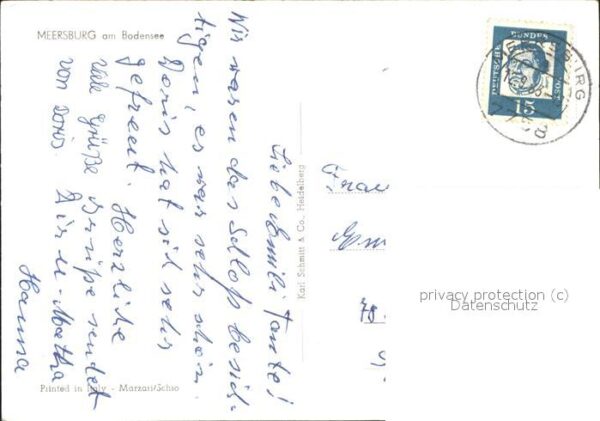 MEERSBURG am Bodensee
Liebe Emili Tante!
Wir waren das Schloß besich-
tigen, es war sehr schön.
Doris hat sich sehr
gefreut. Herzliche
Grüße sendet
Dir
Hanna
viele Grüße
von Doris.
Karl Schmitt & Co., Heidelberg
Printed in Italy - Marzari/Schio
Frau
DEUTSCHE BUNDESPOST
15
MEERSBURG
privacy protection (c)
Datenschutz